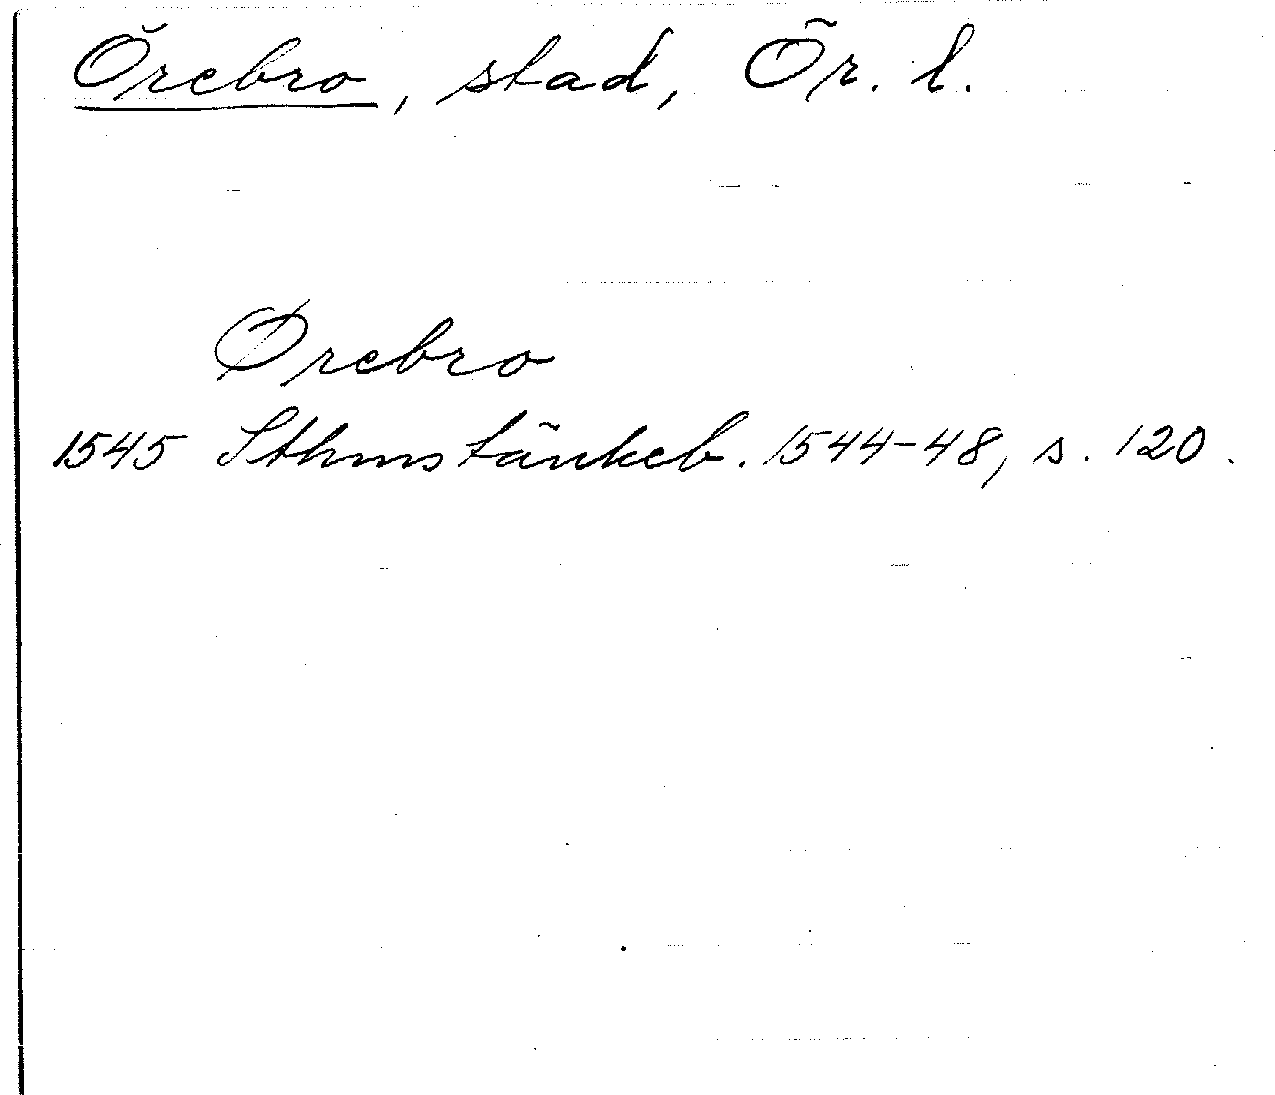 Örebro, stad, Ör. l.
Ørebro
1545 Sthms tänkeb. 1544-48, s. 120.